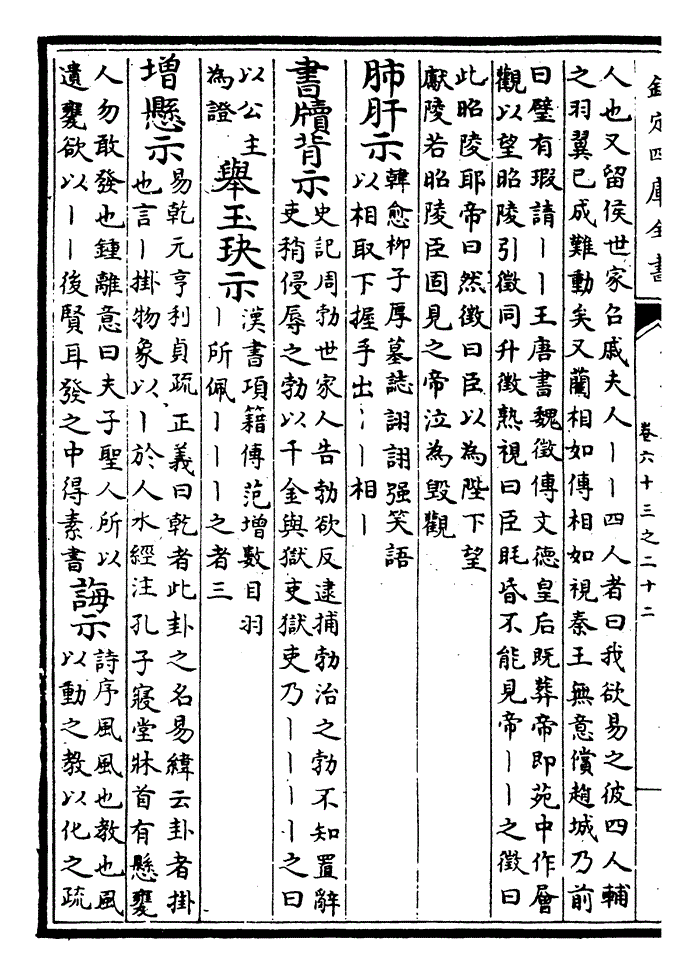 欽定四庫全書
卷六十三之二十二
人也又留侯世家召戚夫人丨丨四人者曰我欲易之彼四人輔
之羽翼已成難動矣又藺相如傳相如視秦王無意償趙城乃前
曰璧有瑕請丨丨王唐書魏徵傳文德皇后既葬帝即苑中作層
觀以望昭陵引徵同升徵熟視曰臣眊昏不能見帝丨丨之徵曰
此昭陵耶帝曰然徵曰臣以為陛下望
獻陵若昭陵臣固見之帝泣為毀觀
肺肝示
韓愈柳子厚墓誌詡詡强笑語
以相取下握手出丨丨相丨
書牘背示
史記周勃世家人告勃欲反逮捕勃治之勃不知置辭
吏稍侵辱之勃以千金與獄吏獄吏乃丨丨丨丨之曰
以公主
為證
舉玉玦示
漢書項籍傳范增數目羽
丨所佩丨丨丨之者三
增懸示
易乾元亨利貞疏正義曰乾者此卦之名易緯云卦者掛
也言丨掛物象以丨於人水經注孔子寢堂牀首有懸甕
人勿敢發也鍾離意曰夫子聖人所以
遺甕欲以丨丨後賢耳發之中得素書
誨示
詩序風風也教也風
以動之教以化之疏